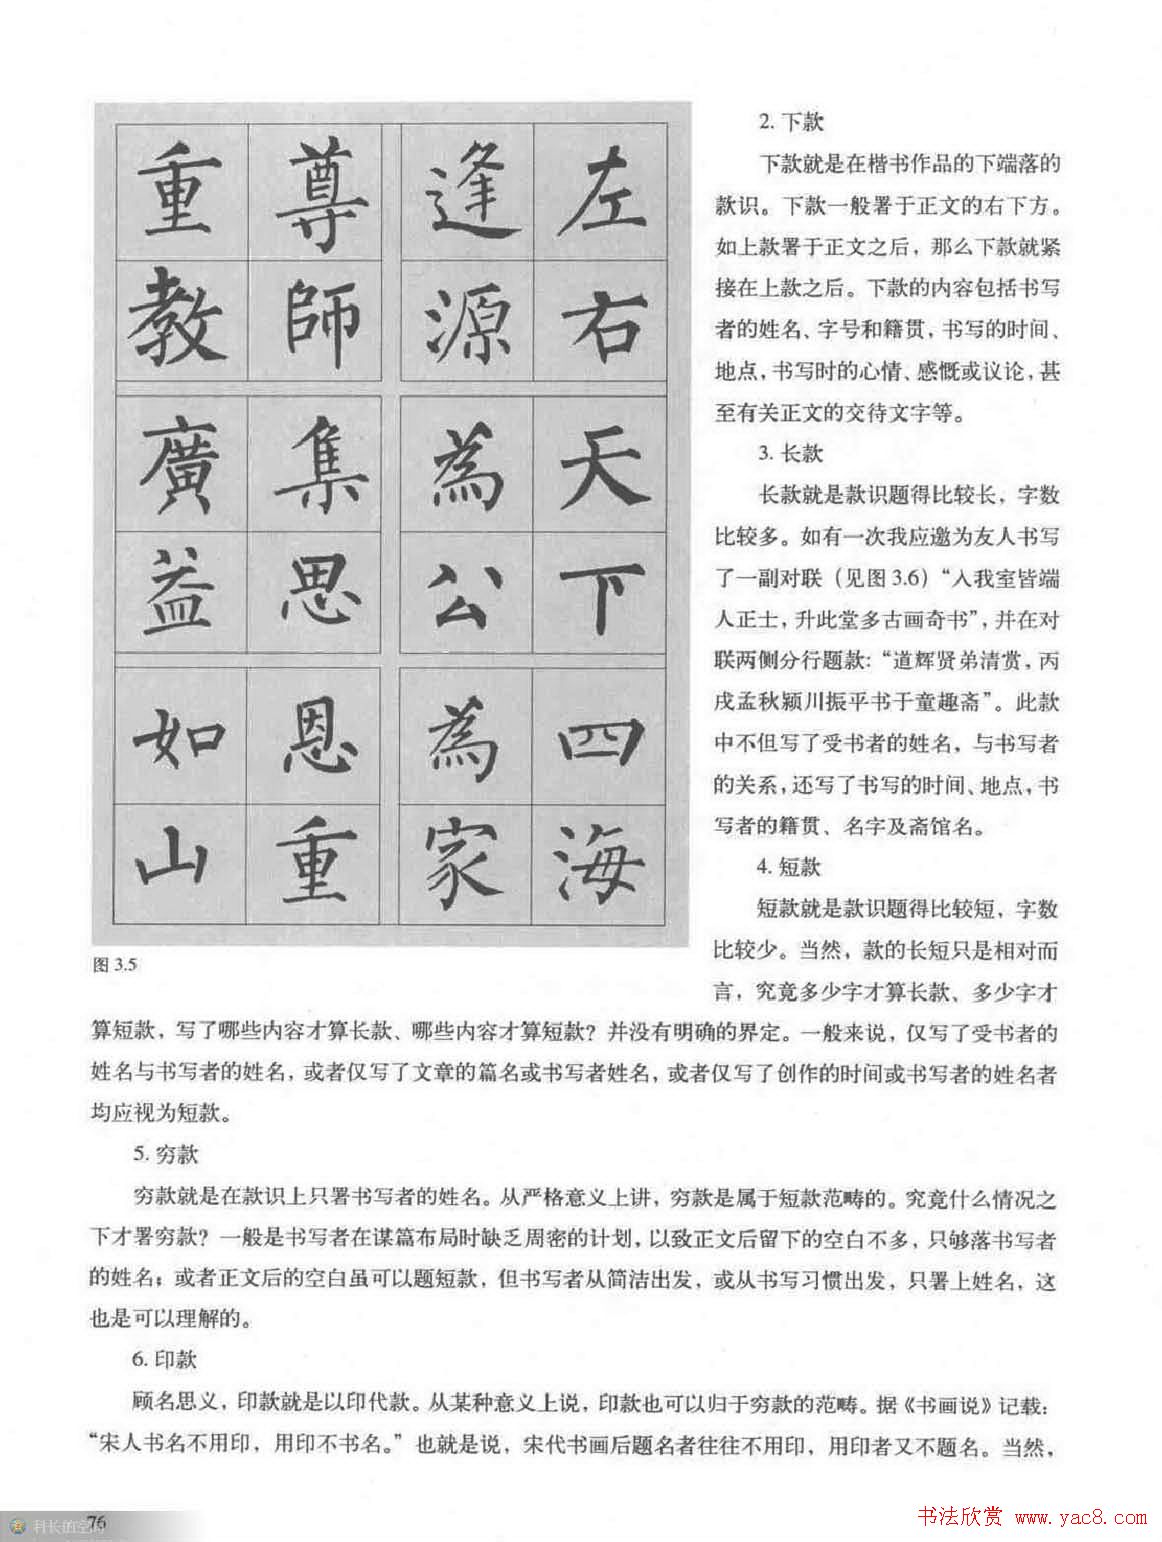 重 尊 逢 左
教 師 源 右
廣 集 為 天
益 思 公 下
如 恩 為 四
山 重 家 海
图 3.5
2. 下款
下款就是在楷书作品的下端落的
款识。下款一般署于正文的右下方。
如上款署于正文之后，那么下款就紧
接在上款之后。下款的内容包括书写
者的姓名、字号和籍贯，书写的时间、
地点，书写时的心情、感慨或议论，甚
至有关正文的交待文字等。
3. 长款
长款就是款识题得比较长，字数
比较多。如有一次我应邀为友人书写
了一副对联（见图 3.6）“入我室皆端
人正士，升此堂多古画奇书”，并在对
联两侧分行题款：“道辉贤弟清赏，丙
戌孟秋颍川振平书于童趣斋”。此款
中不但写了受书者的姓名，与书写者
的关系，还写了书写的时间、地点，书
写者的籍贯、名字及斋馆名。
4. 短款
短款就是款识题得比较短，字数
比较少。当然，款的长短只是相对而
言，究竟多少字才算长款、多少字才
算短款，写了哪些内容才算长款、哪些内容才算短款？并没有明确的界定。一般来说，仅写了受书者的
姓名与书写者的姓名，或者仅写了文章的篇名或书写者姓名，或者仅写了创作的时间或书写者的姓名者
均应视为短款。
5. 穷款
穷款就是在款识上只署书写者的姓名。从严格意义上讲，穷款是属于短款范畴的。究竟什么情况之
下才署穷款？一般是书写者在谋篇布局时缺乏周密的计划，以致正文后留下的空白不多，只够落书写者
的姓名；或者正文后的空白虽可以题短款，但书写者从简洁出发，或从书写习惯出发，只署上姓名，这
也是可以理解的。
6. 印款
顾名思义，印款就是以印代款。从某种意义上说，印款也可以归于穷款的范畴。据《书画说》记载：
“宋人书名不用印，用印不书名。”也就是说，宋代书画后题名者往往不用印，用印者又不题名。当然，
76
书法欣赏 www.yac8.com